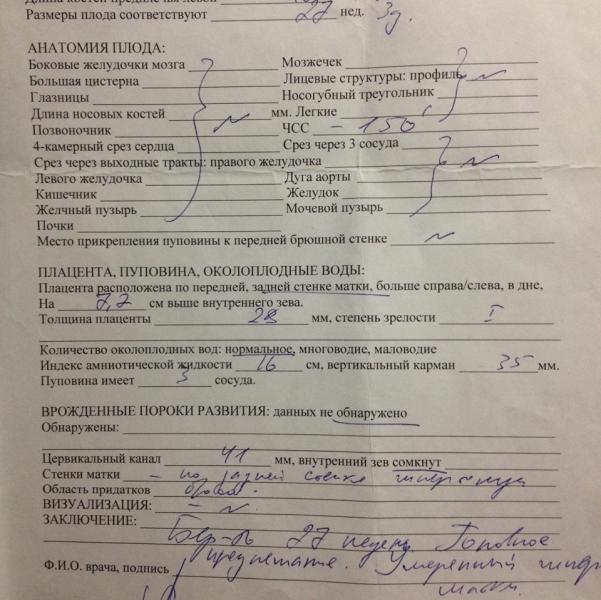 Размеры плода соответствуют 27 нед. 3д.
АНАТОМИЯ ПЛОДА:
Боковые желудочки мозга
Мозжечек
Большая цистерна
Лицевые структуры: профиль
Глазницы
Носогубный треугольник
Длина носовых костей мм.
Легкие
Позвоночник
ЧСС - 150'
4-камерный срез сердца
Срез через 3 сосуда
Срез через выходные тракты: правого желудочка
Левого желудочка
Дуга аорты
Кишечник
Желудок
Желчный пузырь
Мочевой пузырь
Почки
Место прикрепления пуповины к передней брюшной стенке
ПЛАЦЕНТА, ПУПОВИНА, ОКОЛОПЛОДНЫЕ ВОДЫ:
Плацента расположена по передней, задней стенке матки, больше справа/слева, в дне,
На 7,7 см выше внутреннего зева.
Толщина плаценты 28 мм, степень зрелости I
Количество околоплодных вод: нормальное, многоводие, маловодие
Индекс амниотической жидкости 16 см, вертикальный карман 35 мм.
Пуповина имеет 3 сосуда.
ВРОЖДЕННЫЕ ПОРОКИ РАЗВИТИЯ: данных не обнаружено
Обнаружены:
Цервикальный канал 41 мм, внутренний зев сомкнут
Стенки матки - по задней стенке гипертонус
Область придатков
ВИЗУАЛИЗАЦИЯ:
ЗАКЛЮЧЕНИЕ:
Бер-ть 27 недель. Головное
предлежание. Умеренный
Ф.И.О. врача, подпись
матки.